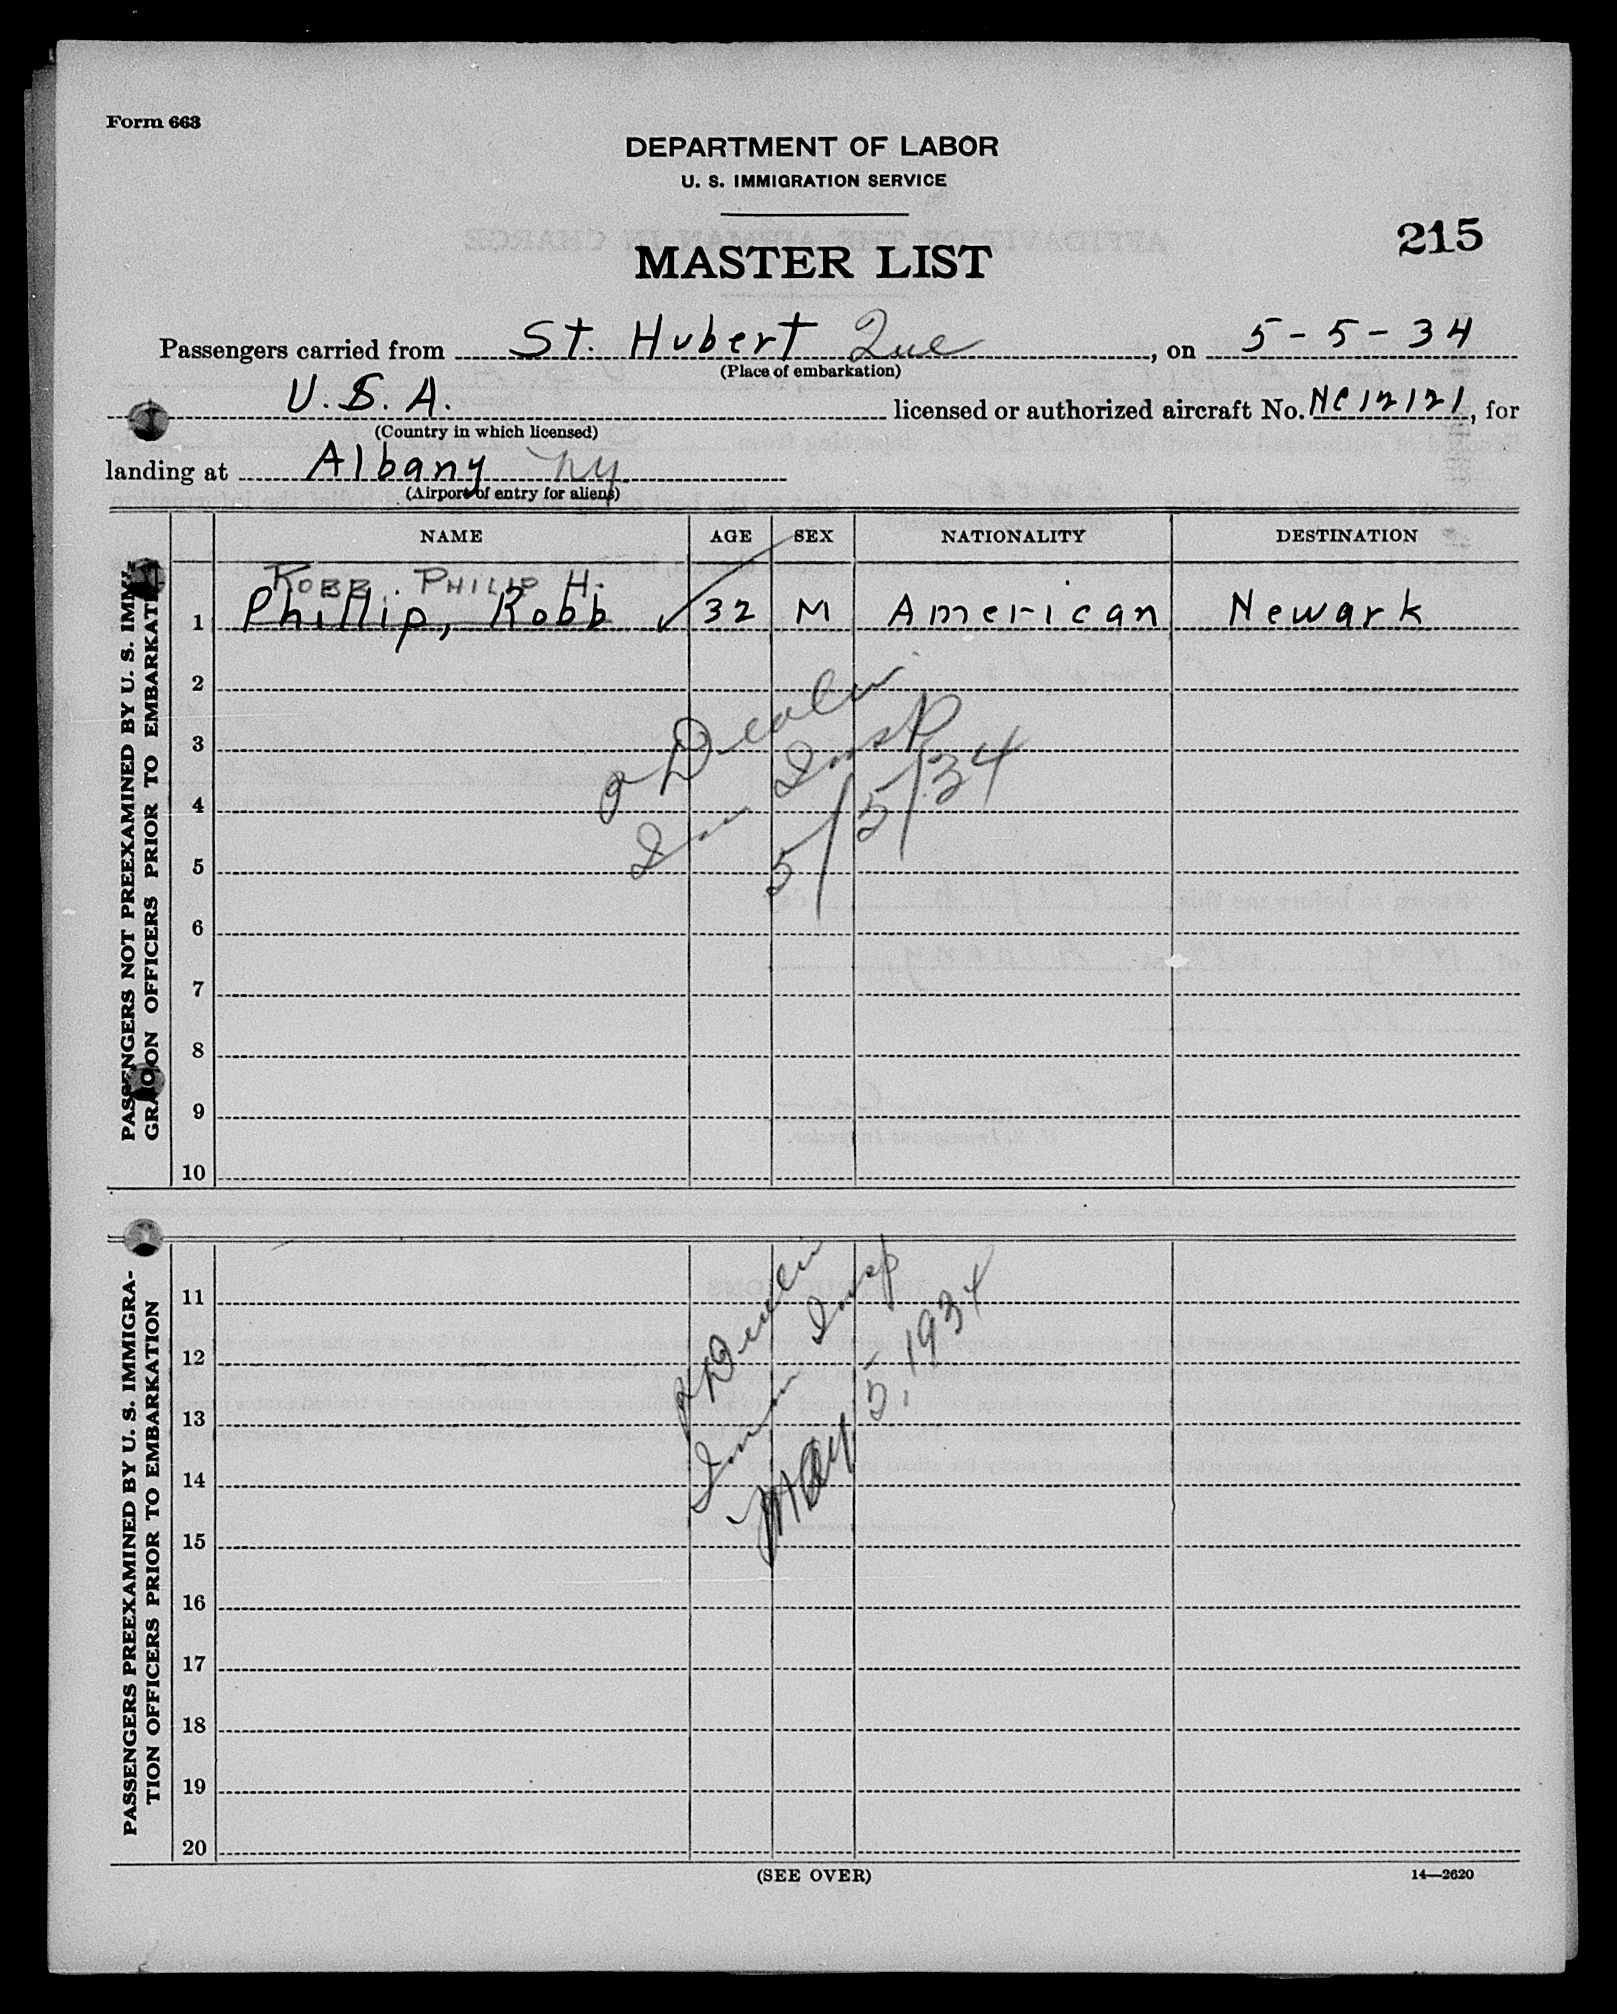 Form 663
DEPARTMENT OF LABOR
U. S. IMMIGRATION SERVICE
MASTER LIST
215
Passengers carried from St. Hubert Que, on 5-5-34
(Place of embarkation)
U.S.A. licensed or authorized aircraft No. NC12121, for
(Country in which licensed)
landing at Albany NY
(Airport of entry for aliens)
NAME AGE SEX NATIONALITY DESTINATION
PASSENGERS NOT PREEXAMINED BY U. S. IMMI-
GRATION OFFICERS PRIOR TO EMBARKATION
ROBB, PHILIP H.
1 Phillip, Robb ✓ 32 M American Newark
2
3
4
5
6
7
8
9
10
Imm Insp
5/5/34
PASSENGERS PREEXAMINED BY U. S. IMMIGRA-
TION OFFICERS PRIOR TO EMBARKATION
11
12
13
14
15
16
17
18
19
20
Imm Insp
May 5, 1934
(SEE OVER)
14—2620